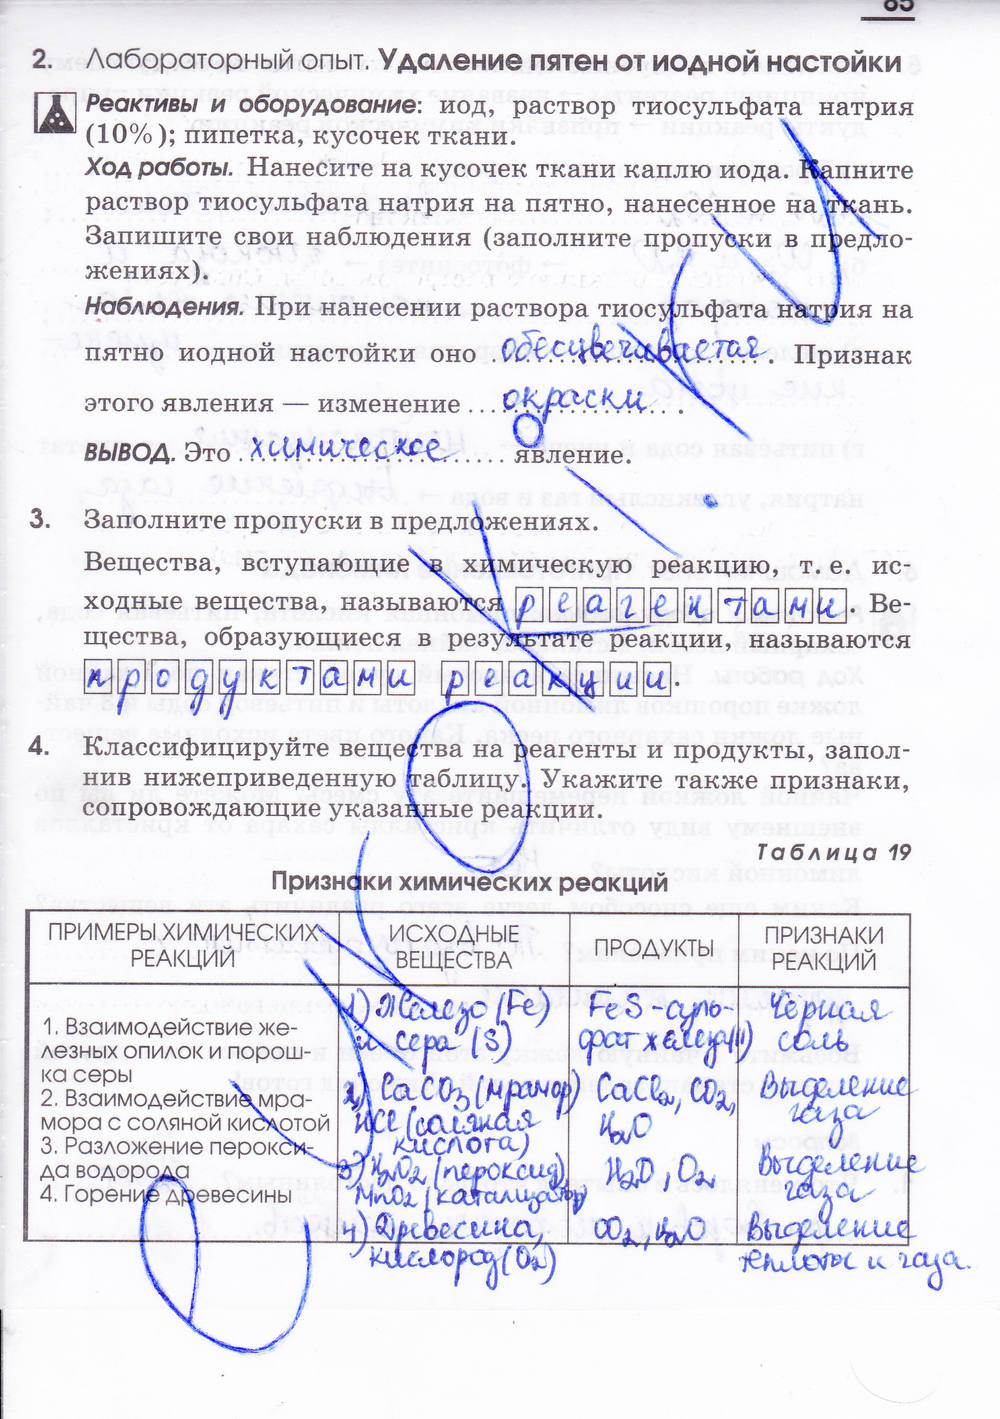 85
2. Лабораторный опыт. Удаление пятен от иодной настойки
Реактивы и оборудование: иод, раствор тиосульфата натрия
(10%); пипетка, кусочек ткани.
Ход работы. Нанесите на кусочек ткани каплю иода. Капните
раствор тиосульфата натрия на пятно, нанесенное на ткань.
Запишите свои наблюдения (заполните пропуски в предло-
жениях).
Наблюдения. При нанесении раствора тиосульфата натрия на
пятно иодной настойки оно обесцвечивается. Признак
этого явления — изменение окраски.
ВЫВОД. Это химическое явление.
3. Заполните пропуски в предложениях.
Вещества, вступающие в химическую реакцию, т. е. ис-
ходные вещества, называются реагентами. Ве-
щества, образующиеся в результате реакции, называются
продуктами реакции.
4. Классифицируйте вещества на реагенты и продукты, запол-
нив нижеприведенную таблицу. Укажите также признаки,
сопровождающие указанные реакции.
Таблица 19
Признаки химических реакций
ПРИМЕРЫ ХИМИЧЕСКИХ РЕАКЦИЙ
ИСХОДНЫЕ ВЕЩЕСТВА
ПРОДУКТЫ
ПРИЗНАКИ РЕАКЦИЙ
1. Взаимодействие же-
лезных опилок и порош-
ка серы
2. Взаимодействие мра-
мора с соляной кислотой
3. Разложение перокси-
да водорода
4. Горение древесины
1) Железо (Fe)
и сера (S)
2) CaCO3 (мрамор)
HCl (соляная
кислота)
3) H2O2 (пероксид)
MnO2 (катализатор)
4) Древесина,
кислород (O2)
FeS - суль-
фат железа(II)
CaCl2, CO2,
H2O
H2O, O2
CO2, H2O
Чёрная
соль
Выделение
газа
Выделение
газа
Выделение
теплоты и газа.